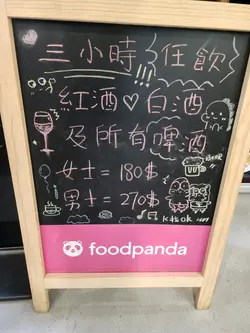 三小時任飲
紅酒♡白酒
及所有啤酒
女士=180$
男士=270$
foodpanda